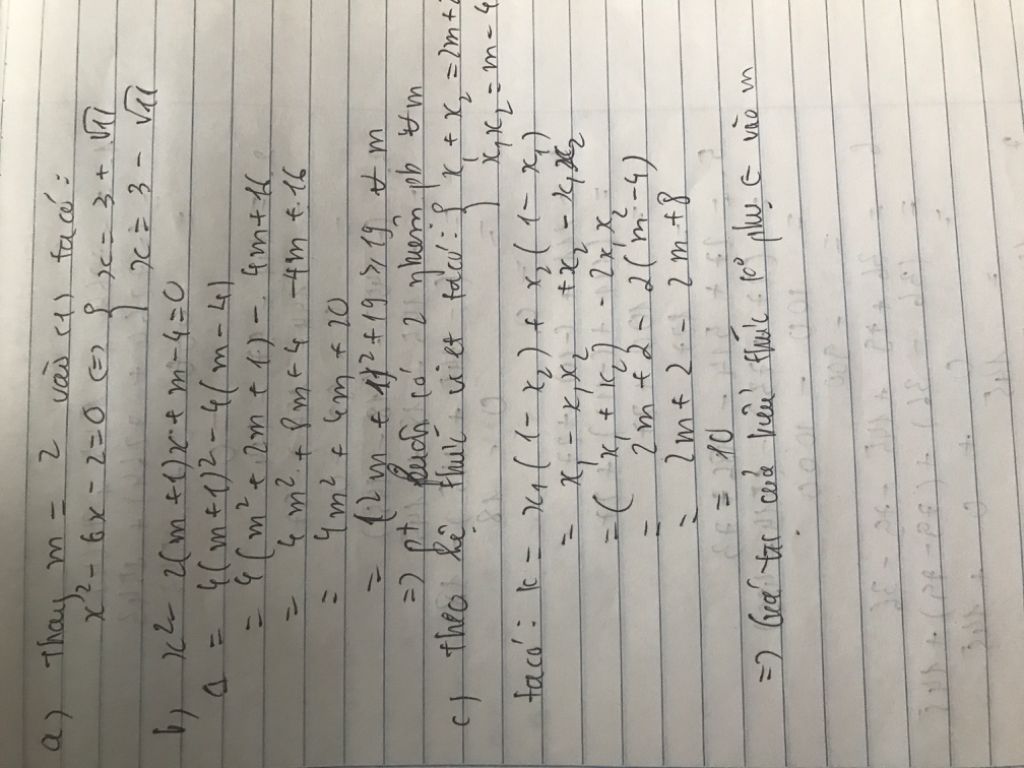 a) Thay m = 2 vào (1) ta có:
x² - 6x - 2 = 0 <=> { x = 3 + √11
{ x = 3 - √11
b) x² - 2(m+1)x + m - 4 = 0
Δ = 4(m+1)² - 4(m-4)
= 4(m² + 2m + 1) - 4m + 16
= 4m² + 8m + 4 - 4m + 16
= 4m² + 4m + 20
= (2m + 1)² + 19 ≥ 19 ∀ m
=> pt luôn có 2 nghiệm pb ∀ m
c) Theo hệ thức viet ta có: { x₁ + x₂ = 2m + 2
{ x₁x₂ = m - 4
ta có: K = x₁(1 - x₂) + x₂(1 - x₁)
= x₁ - x₁x₂ + x₂ - x₁x₂
= (x₁ + x₂) - 2x₁x₂
= 2m + 2 - 2(m - 4)
= 2m + 2 - 2m + 8
= 10
=> Giá trị của biểu thức k° phụ ∈ vào m